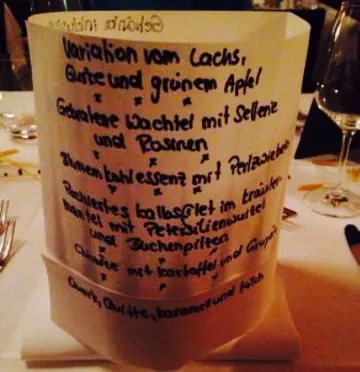 Variation vom Lachs,
Gurke und grünem Apfel
x x x
Gebratene Wachtel mit Sellerie
und Rosinen
x x
Blumenkohlessenz mit Perlzwiebeln
x x x
Pochiertes Kalbsfilet im Kräuter-
mantel mit Petersilienwurzel
und Buchenpilzen
x x
mit Kartoffel und
Quark, Quitte, Karamel und